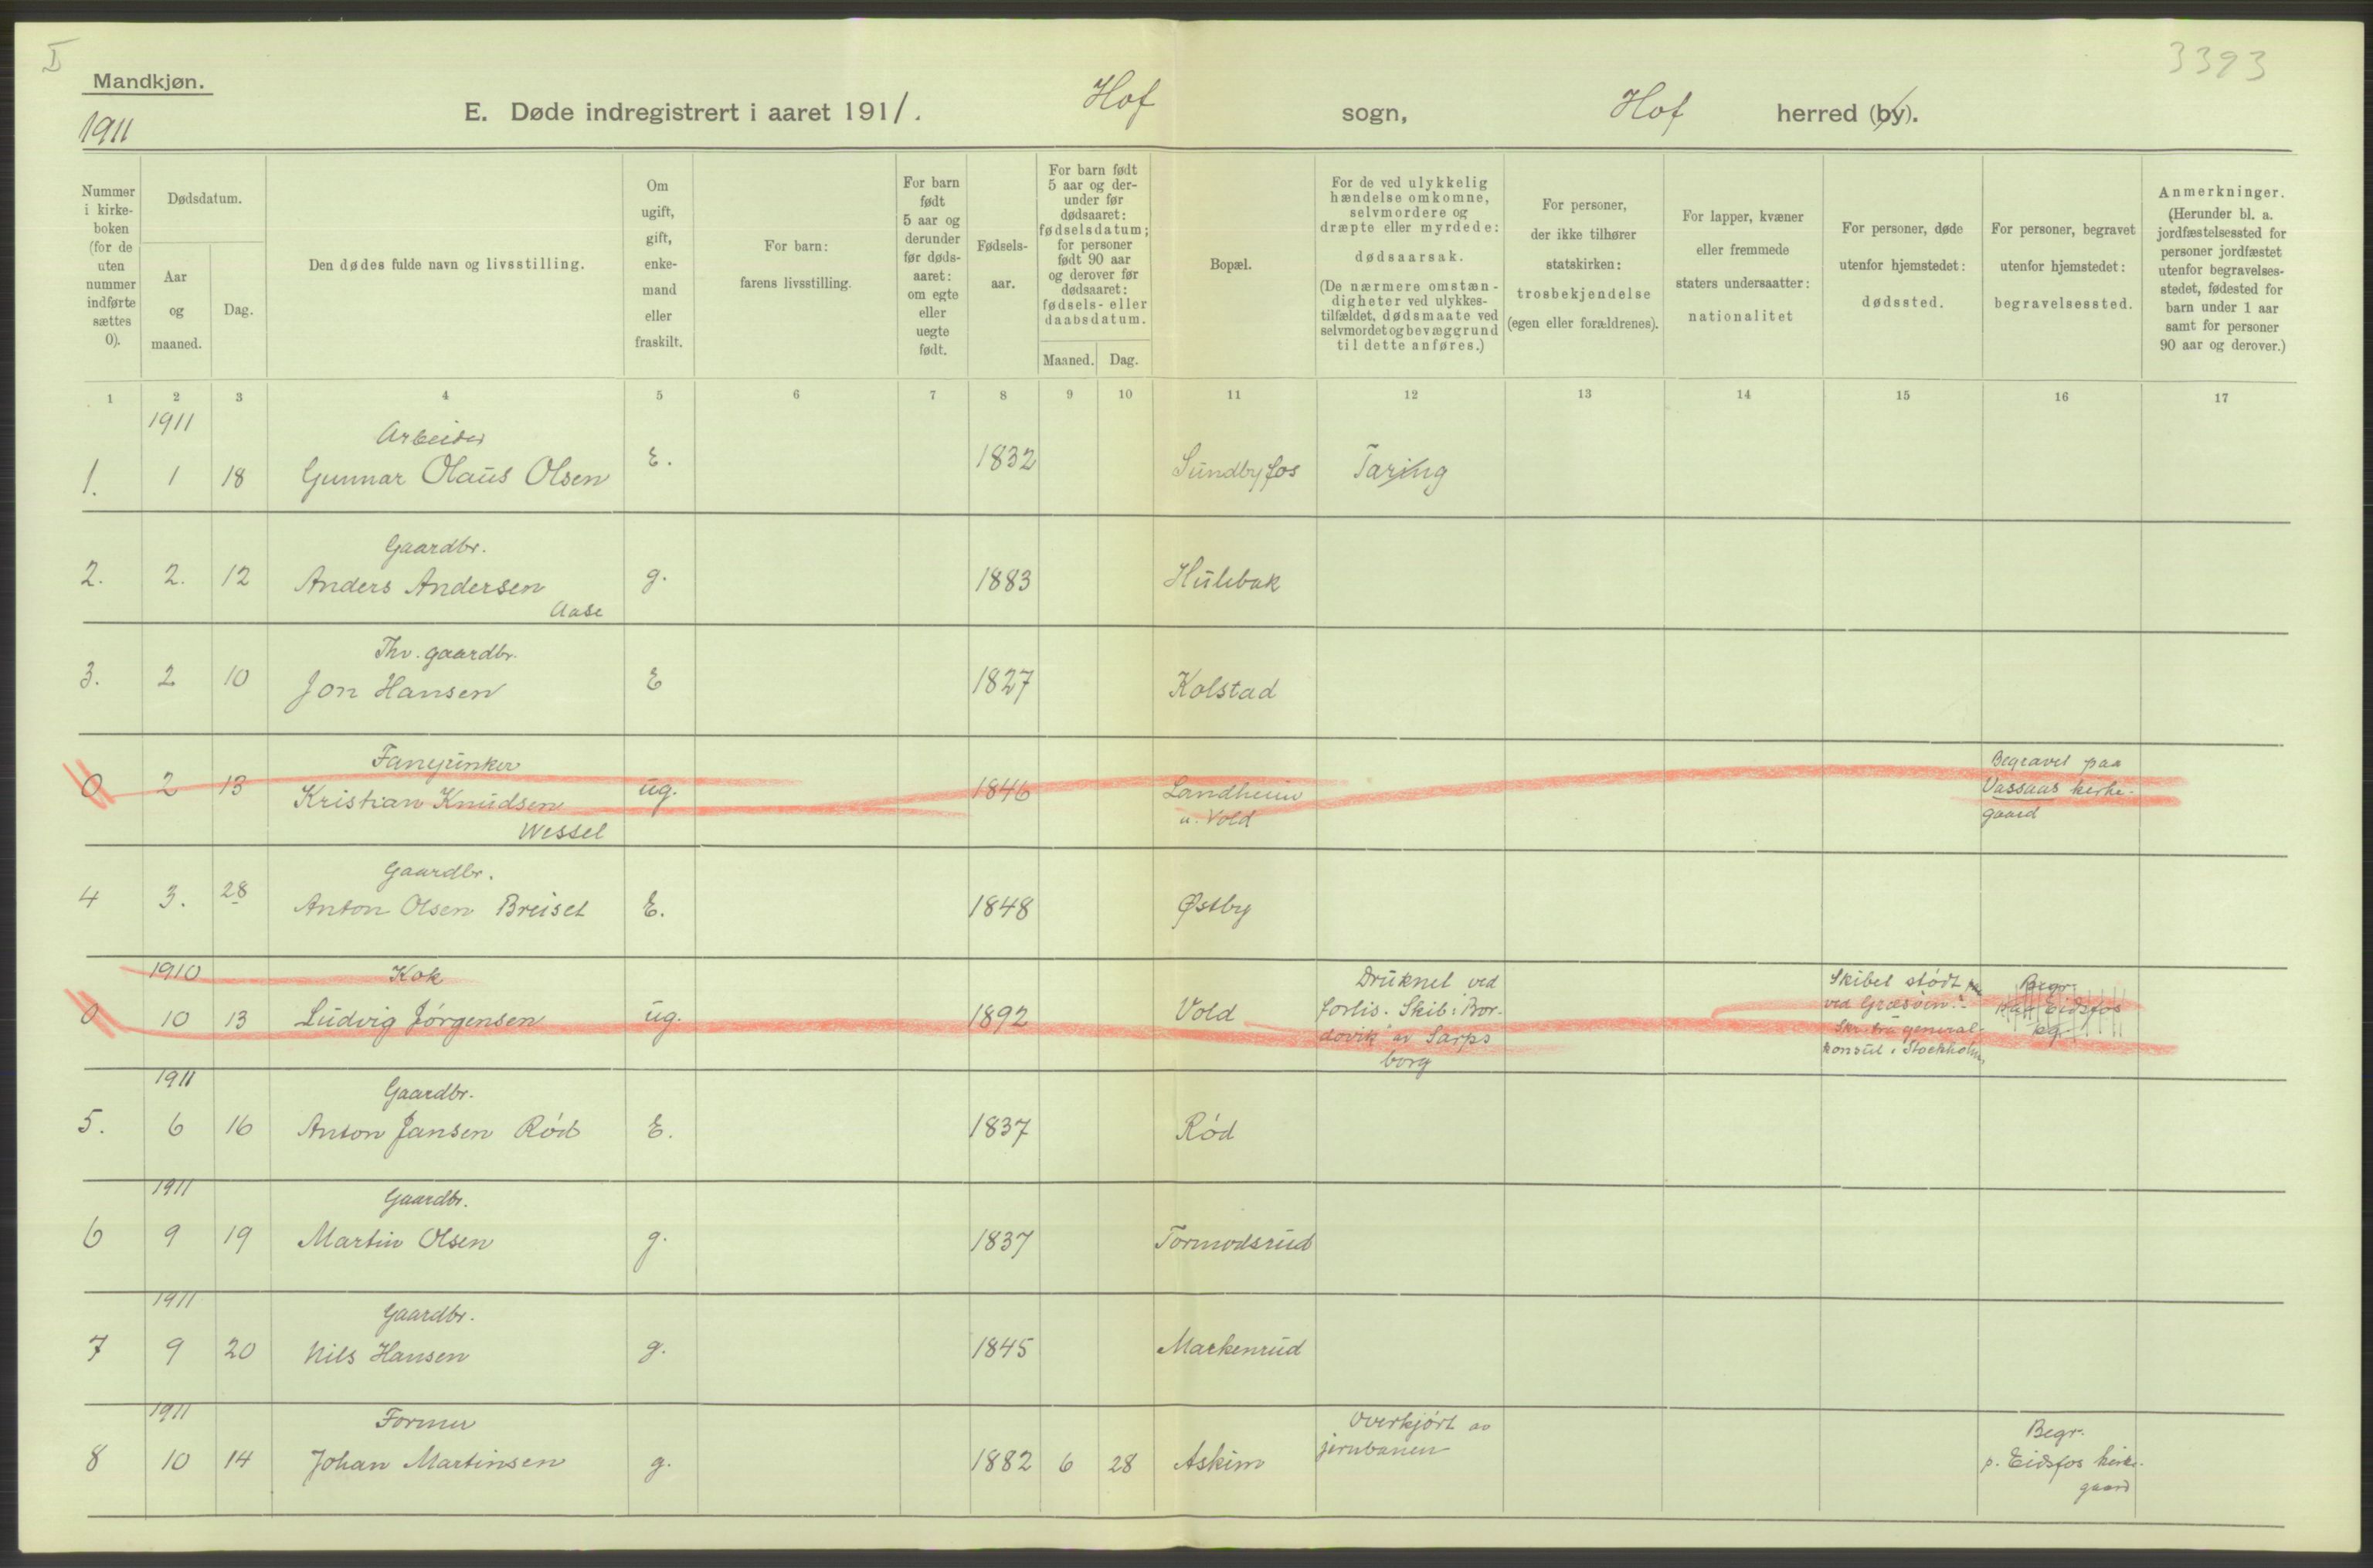 I
3393
Mandkjøn.
1911
E. Døde indregistrert i aaret 1911. Hof sogn, Hof herred (by).
Nummer i kirke-boken (for de uten nummer indførte sættes 0).
Dødsdatum.
Aar og maaned.
Dag.
Den dødes fulde navn og livsstilling.
Om ugift, gift, enke-mand eller fraskilt.
For barn: farens livsstilling.
For barn født 5 aar og derunder før døds-aaret: om egte eller uegte født.
Fødsels-aar.
For barn født 5 aar og der-under før dødsaaret: fødselsdatum; for personer født 90 aar og derover før dødsaaret: fødsels- eller daabsdatum.
Maaned. Dag.
Bopæl.
For de ved ulykkelig hændelse omkomne, selvmordere og dræpte eller myrdede: dødsaarsak.
(De nærmere omstæn-digheter ved ulykkes-tilfældet, dødsmaate ved selvmordet og bevæggrund til dette anføres.)
For personer, der ikke tilhører statskirken: trosbekjendelse (egen eller forældrenes).
For lapper, kvæner eller fremmede staters undersaatter: nationalitet
For personer, døde utenfor hjemstedet: dødssted.
For personer, begravet utenfor hjemstedet: begravelsessted.
Anmerkninger.
(Herunder bl. a. jordfæstelsessted for personer jordfæstet utenfor begravelses-stedet, fødested for barn under 1 aar samt for personer 90 aar og derover.)
1 2 3 4 5 6 7 8 9 10 11 12 13 14 15 16 17
1911 Arbeider
1. 1 18 Gunnar Olaus Olsen E. 1832 Sundbyfos Taring
Gaardbr.
2. 2. 12 Anders Andersen g. 1883 Hulebak
Aase
Fhv. gaardbr.
3. 2 10 Jon Hansen E 1827 Kolstad
Fanejunker Begravet paa
0 2 13 Kristian Knudsen ug. 1846 Landheim Vassaas kirke-
Wessel u. Vold gaard
Gaardbr.
4 3. 28 Anton Olsen Breiset E. 1848 Østby
1910 Kok Druknet ved Skibet stødt paa Begr.
0 10 13 Ludvig Jørgensen ug. 1892 Vold forlis. Skib: Bor- ved Græsøen. paa Eidsfos
dovik av Sarps Skr. fra general- kg.
borg konsul i Stockholm
1911 Gaardbr.
5. 6 16 Anton Jansen Rød E. 1837 Rød
1911 Gaardbr.
6 9 19 Martin Olsen g. 1837 Tormodsrud
1911 Gaardbr.
7 9 20 Nils Hansen g. 1845 Markenrud
1911 Former Overkjørt av Begr.
8 10 14 Johan Martinsen g. 1882 6 28 Askim jernbanen p. Eidsfos kirke-
gaard